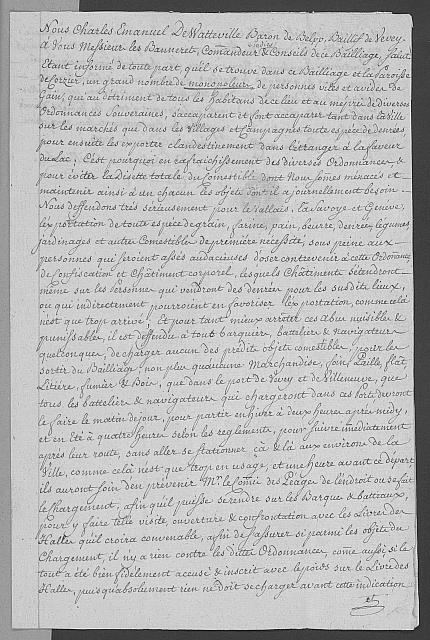 Nous Charles Emanuel De Watteville Baron de Belp, Baillif de Vevey
A Vous Messieurs les Bannerets, Comandeurs & Conseils de ce Bailliage, Salut
Etant informé de toute part, qu'il se trouve dans ce Bailliage et la Paroisse
de Corzier, un grand nombre de monopoleurs, de personnes viles et avides de
Gain, qui au détriment de tous les habitans de ce lieu et au mépris de diverses
Ordonnances Souveraines, s'accaparent et font accaparer tant dans la Ville
sur les marchés que dans les Villages et Campagnes toute espèce de denrées
pour ensuite les exporter clandestinement dans l'étranger à la faveur
du lac; C'est pourquoi en rafraichissement des diverses Ordonnances, &
pour éviter la Disette totale du Comestible dont Nous somes menacés et
maintenir ainsi à un chacun les objets dont il a journellement besoin.
Nous deffendons très sérieusement pour le Vallais, la Savoye et Genève,
l'exportation de toute espèce de grain, farine, pain, beurre, denrées, légumes,
jardinages et autres Comestibles de première nécessité, sous peine aux
personnes qui seroient assés audacieuses d'oser contrevenir à cette Ordonance,
de Confiscation et Châtiment corporel, lesquels Châtiments s'étendront
même sur les Personnes qui vendront des denrées pour les susdits lieux,
ou qui indirectement pourroient en favoriser l'exportation, come cela
n'est que trop arrivé; Et pour tant mieux arrêter ces abus nuisibles &
punissables, il est deffendu à tout barquier, battelier & navigateurs
quelconques, de charger aucun des prédits objets comestibles, pour les
sortir du Bailliage, non plus qu'aucune Marchandise, foin, Paille, flat,
Litière, fumier & Bois, que dans le port de Vevey et de Villeneuve, que
tous les batteliers & navigateurs qui chargeront dans ces ports devront
le faire le matin de jour, pour partir en hiver à deux heures après midy,
et en Eté à quatre heures selon les reglements, pour suivre imédiatement
après leur route, sans aller se stationner çà & là aux environs de la
Ville, comme cela n'est que trop en usage, et une heure avant ce départ,
ils auront soin d'en prévenir Mr. le Comis des Péages de l'endroit ou se fait
le Chargement, afin qu'il puisse se rendre sur les Barques & batteaux,
pour y faire telle visite, ouverture & confrontation avec les Livres des
Halles qu'il croira convenable, afin de s'assurer si parmi les objets du
Chargement, il n'y a rien contre les dittes Ordonnances, come aussi si le
tout a été bien fidèlement accusé & inscrit avec le poids sur le Livre des
Halles, puisqu'absolument rien ne doit se charger avant cette indication
et